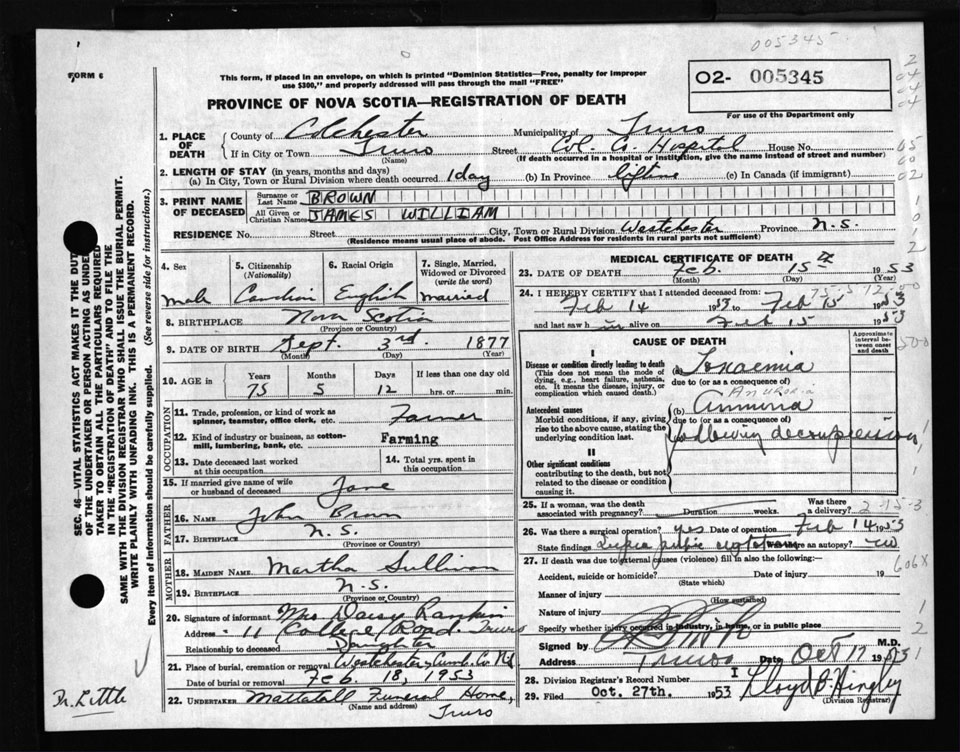 005345
FORM 6
This form, if placed in an envelope, on which is printed "Dominion Statistics—Free, penalty for improper
use $300," and properly addressed will pass through the mail "FREE"
O2- 005345
For use of the Department only
PROVINCE OF NOVA SCOTIA—REGISTRATION OF DEATH
1. PLACE OF DEATH County of Colchester Municipality of Truro
If in City or Town Truro Street Col. Co. Hospital House No.
(Name) (If death occurred in a hospital or institution, give the name instead of street and number)
2. LENGTH OF STAY (in years, months and days)
(a) In City, Town or Rural Division where death occurred 1 day (b) In Province lifetime (c) In Canada (if immigrant)
3. PRINT NAME OF DECEASED Surname or Last Name BROWN
All Given or Christian Names JAMES WILLIAM
RESIDENCE No. Street City, Town or Rural Division Westchester Province N.S.
(Residence means usual place of abode. Post Office Address for residents in rural parts not sufficient)
4. Sex 5. Citizenship (Nationality) 6. Racial Origin 7. Single, Married, Widowed or Divorced (write the word)
male Canadian English married
8. BIRTHPLACE Nova Scotia
(Province or Country)
9. DATE OF BIRTH Sept. 3rd. 1877
(Month) (Day) (Year)
10. AGE in Years Months Days If less than one day old
75 5 12 hrs. or min.
OCCUPATION
11. Trade, profession, or kind of work as spinner, teamster, office clerk, etc. Farmer
12. Kind of industry or business, as cotton-mill, lumbering, bank, etc. Farming
13. Date deceased last worked at this occupation 14. Total yrs. spent in this occupation
15. If married give name of wife or husband of deceased Jane
FATHER
16. NAME John Brown
17. BIRTHPLACE N.S.
(Province or Country)
MOTHER
18. MAIDEN NAME Martha Sullivan
19. BIRTHPLACE N.S.
(Province or Country)
20. Signature of informant Mrs Daisy Rankin
Address 11 College Road. Truro
Relationship to deceased Daughter
21. Place of burial, cremation or removal Westchester, Cumb. Co. N.S.
Date of burial or removal Feb. 18, 1953
22. UNDERTAKER Mattatall Funeral Home,
(Name and address) Truro
MEDICAL CERTIFICATE OF DEATH
23. DATE OF DEATH Feb. 15th 1953
(Month) (Day) (Year)
24. I HEREBY CERTIFY that I attended deceased from:
Feb 14 1953 to Feb 15 1953
and last saw him alive on Feb 15 1953
CAUSE OF DEATH
Approximate interval between onset and death
I
Disease or condition directly leading to death (a)
(This does not mean the mode of dying, e.g., heart failure, asthenia, etc. It means the disease, injury, or complication which caused death.)
due to (or as a consequence of)
Antecedent causes (b)
Morbid conditions, if any, giving rise to the above cause, stating the underlying condition last.
due to (or as a consequence of)
following decompression
II
Other significant conditions
contributing to the death, but not related to the disease or condition causing it.
25. If a woman, was the death associated with pregnancy? Duration weeks. Was there a delivery?
26. Was there a surgical operation? yes Date of operation Feb 14 1953
State findings Was there an autopsy? no
27. If death was due to external causes (violence) fill in also the following:
Accident, suicide or homicide? Date of injury 19
(State which)
Manner of injury
(How sustained)
Nature of injury
Specify whether injury occurred in industry, in home, or in public place
Signed by M.D.
Address Truro Date Oct 17 19
28. Division Registrar's Record Number I
29. Filed Oct. 27th. 1953 Lloyd B. Hingley
(Division Registrar)
SEC. 46—VITAL STATISTICS ACT MAKES IT THE DUTY
OF THE UNDERTAKER OR PERSON ACTING AS UNDER-
TAKER TO OBTAIN ALL THE PARTICULARS REQUIRED
IN THE "REGISTRATION OF DEATH" AND TO FILE THE
SAME WITH THE DIVISION REGISTRAR WHO SHALL ISSUE THE BURIAL PERMIT.
WRITE PLAINLY WITH UNFADING INK. THIS IS A PERMANENT RECORD.
Every item of information should be carefully supplied. (See reverse side for instructions.)
Dr. Little